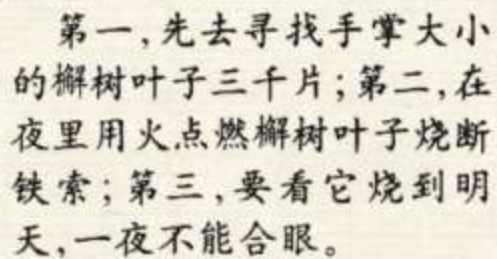 第一,先去寻找手掌大小
的檞树叶子三千片;第二,在
夜里用火点燃檞树叶子烧断
铁索;第三,要看它烧到明
天,一夜不能合眼。